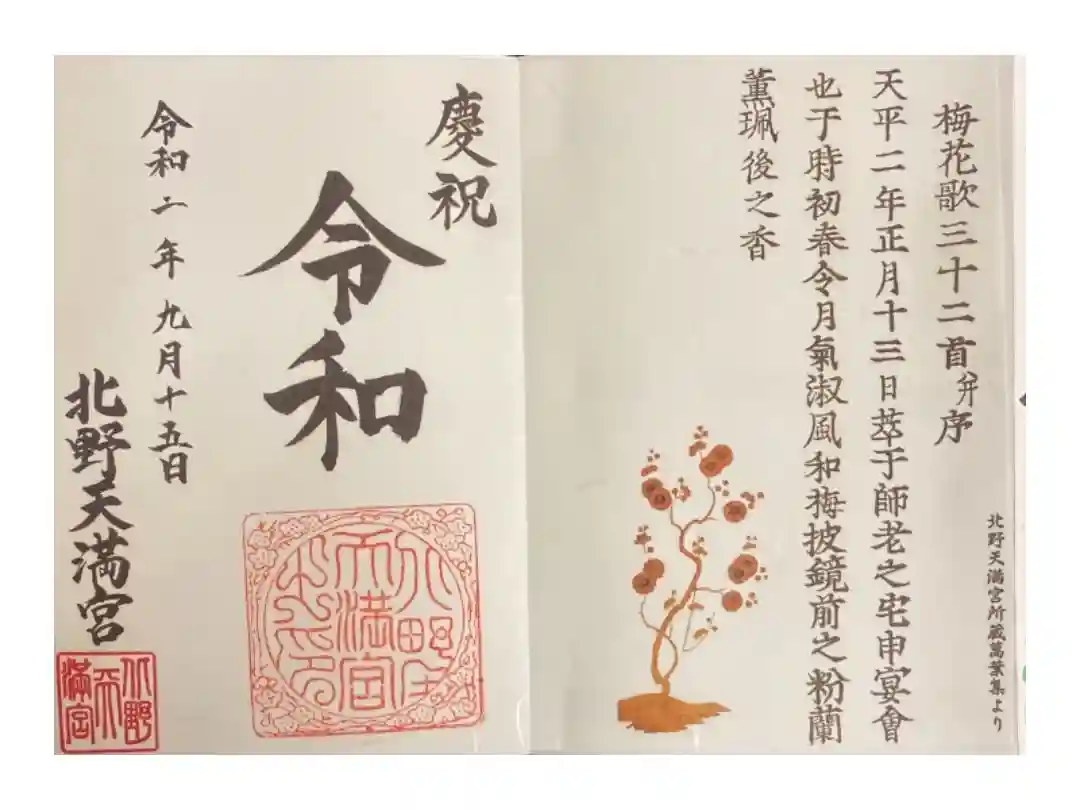 北野天満宮所蔵萬葉集より
梅花歌三十二首并序
天平二年正月十三日萃于師老之宅申宴會
也于時初春令月氣淑風和梅披鏡前之粉蘭
薫珮後之香
慶祝
令和
令和二年九月十五日
北野天満宮
北野
天満宮
之印
北野
天
満宮